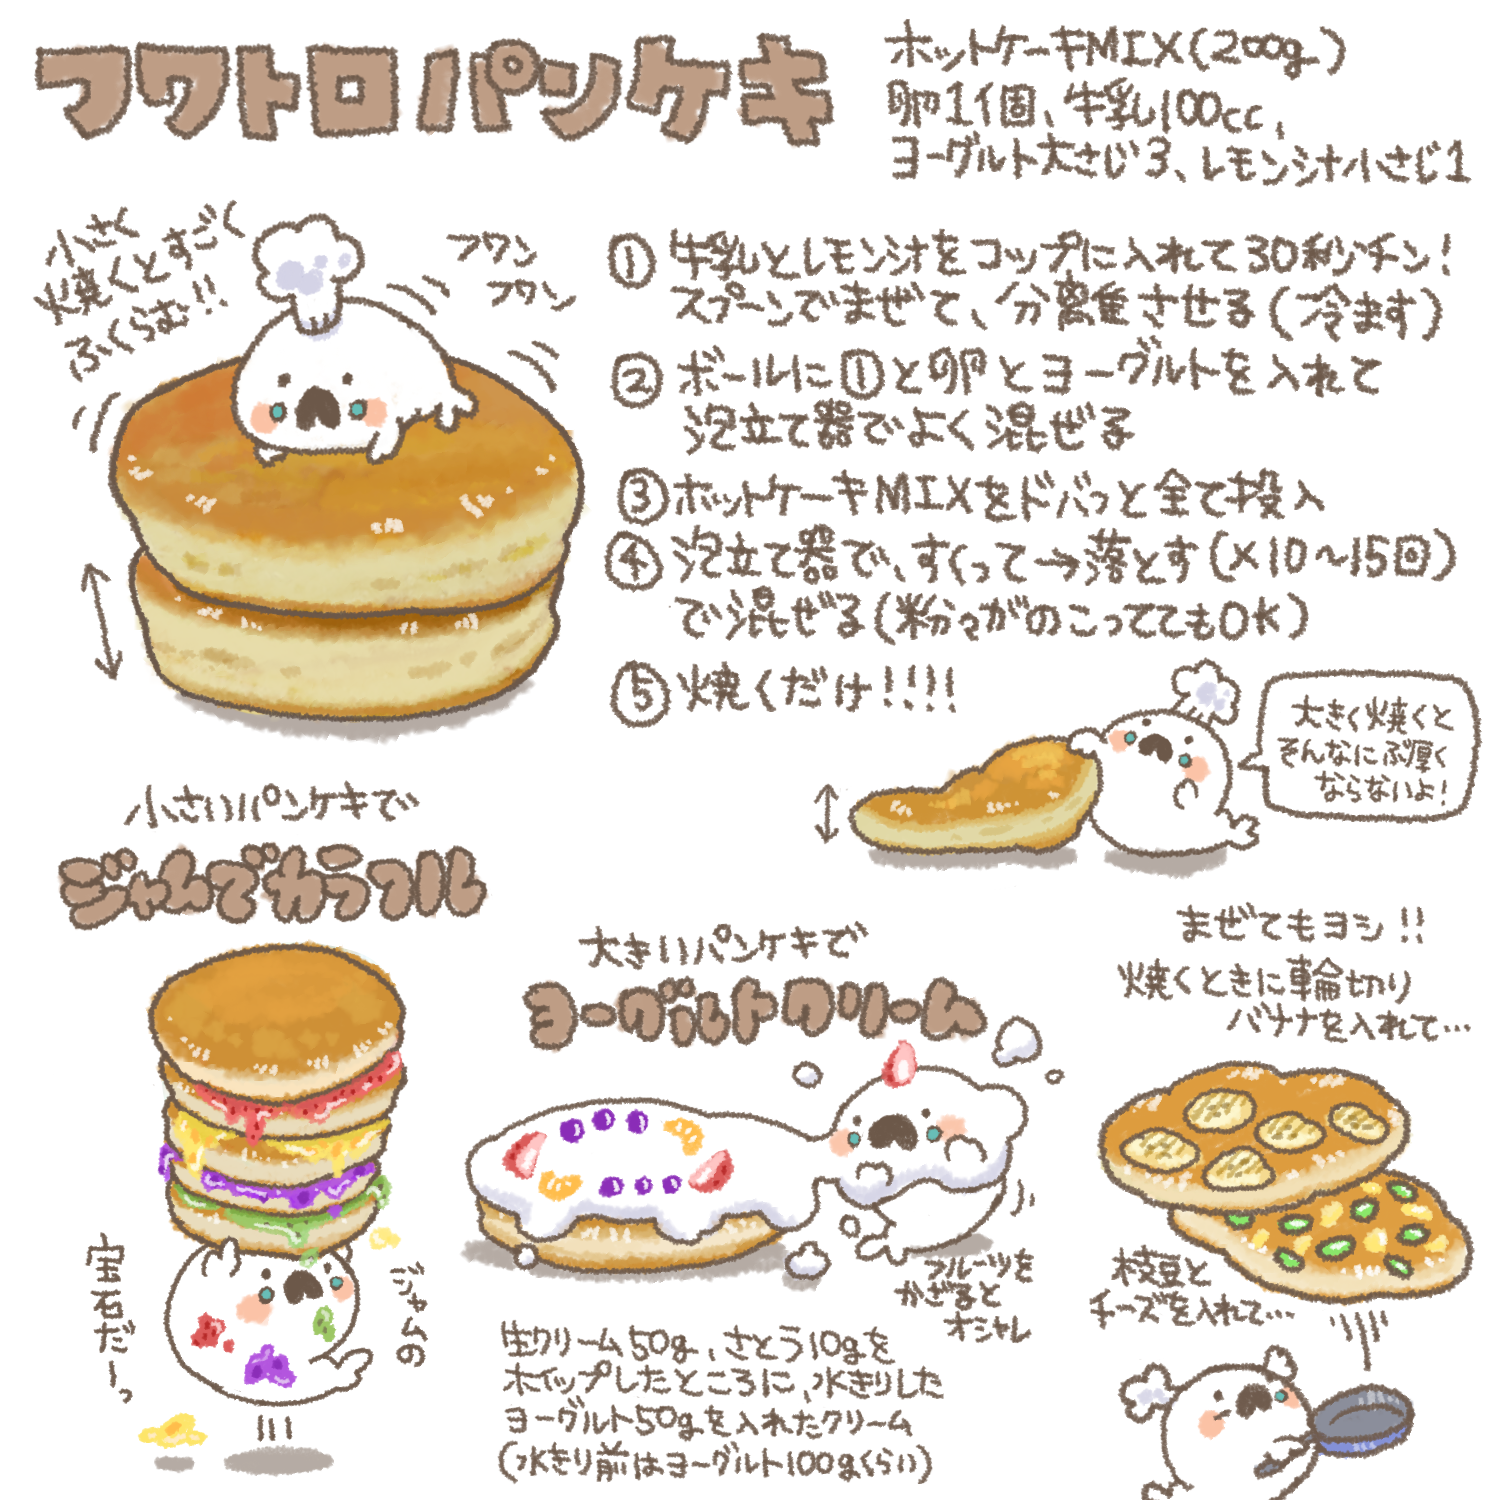 フワトロパンケキ
ホットケーキMIX(200g)
卵1個、牛乳100cc、
ヨーグルト大さじ3、レモン汁小さじ1
小さく
焼くとすごく
ふくらむ!!
フワン
フワン
①牛乳とレモン汁をコップに入れて30秒チン!
スプーンでまぜて、分離させる(冷ます)
②ボールに①と卵とヨーグルトを入れて
泡立て器でよく混ぜる
③ホットケーキMIXをドバっと全て投入
④泡立て器で、すくって→落とす(×10～15回)
で混ぜる(粉々がのこっててもOK)
⑤焼くだけ!!!!
大きく焼くと
そんなにぶ厚く
ならないよ!
小さいパンケキで
ジャムでカラフル
宝石だーっ
ジャムの
大きいパンケキで
ヨーグルトクリーム
フルーツを
かざると
オシャレ
生クリーム50g、さとう10gを
ホイップしたところに、水きりした
ヨーグルト50gを入れたクリーム
(水きり前はヨーグルト100gくらい)
まぜてもヨシ!!
焼くときに輪切り
バナナを入れて…
枝豆と
チーズを入れて…